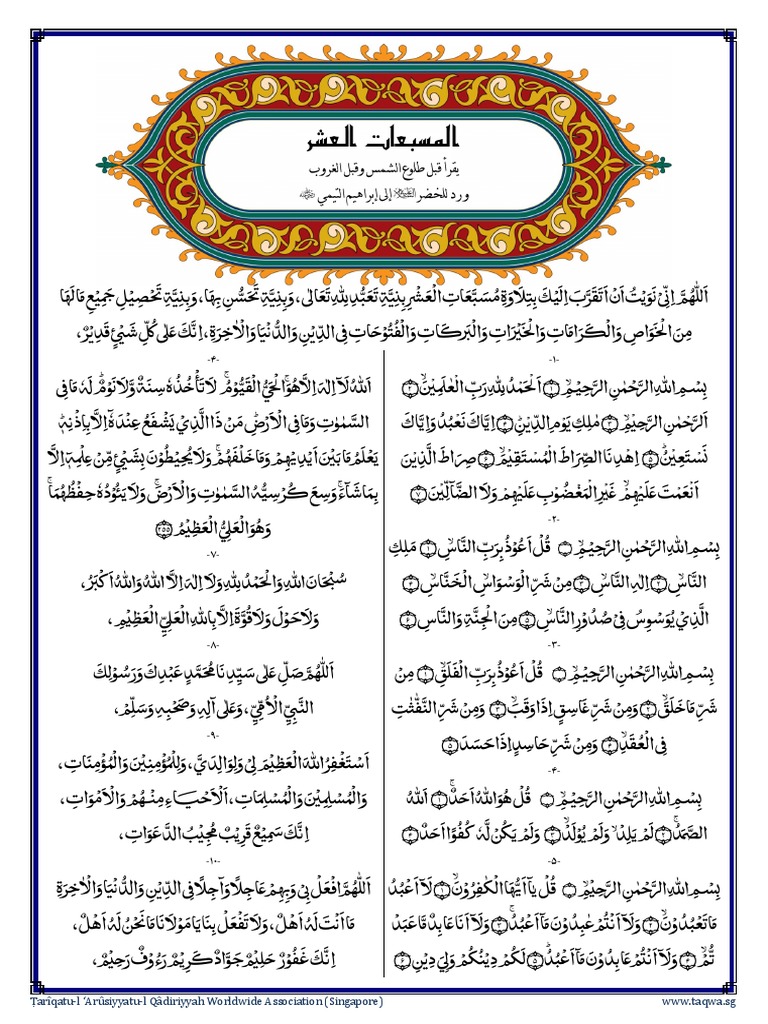 المسبعات العشر
يقرأ قبل طلوع الشمس وقبل الغروب
ورد للخضر ﷺ إلى إبراهيم التيمي
اَللّٰهُمَّ اِنِّيْ نَوَيْتُ اَنْ اَتَقَرَّبَ اِلَيْكَ بِتِلَاوَةِ مُسَبَّعَاتِ الْعَشْرِ بِنِيَّةِ تَعَبُّدٍ لِلّٰهِ تَعَالٰى، وَبِنِيَّةِ تَحَسُّنٍ بِهَا، وَبِنِيَّةِ تَحْصِيْلِ جَمِيْعِ مَالَهَا
مِنَ الْخَوَاصِ وَالْكَرَامَاتِ وَالْخَيْرَاتِ وَالْبَرَكَاتِ وَالْفُتُوْحَاتِ فِي الدِّيْنِ وَالدُّنْيَا وَالْاٰخِرَةِ، اِنَّكَ عَلٰى كُلِّ شَيْئٍ قَدِيْرٌ،
-١-
بِسْمِ اللّٰهِ الرَّحْمٰنِ الرَّحِيْمِ ۝١ اَلْحَمْدُ لِلّٰهِ رَبِّ الْعٰلَمِيْنَ ۝٢
اَلرَّحْمٰنِ الرَّحِيْمِ ۝٣ مٰلِكِ يَوْمِ الدِّيْنِ ۝٤ اِيَّاكَ نَعْبُدُ وَاِيَّاكَ
نَسْتَعِيْنُ ۝٥ اِهْدِنَا الصِّرَاطَ الْمُسْتَقِيْمَ ۝٦ صِرَاطَ الَّذِيْنَ
اَنْعَمْتَ عَلَيْهِمْ غَيْرِ الْمَغْضُوْبِ عَلَيْهِمْ وَلَا الضَّآلِّيْنَ ۝٧
-٢-
بِسْمِ اللّٰهِ الرَّحْمٰنِ الرَّحِيْمِ ۝ قُلْ اَعُوْذُ بِرَبِّ النَّاسِ ۝١ مَلِكِ
النَّاسِ ۝٢ اِلٰهِ النَّاسِ ۝٣ مِنْ شَرِّ الْوَسْوَاسِ الْخَنَّاسِ ۝٤
الَّذِيْ يُوَسْوِسُ فِيْ صُدُوْرِ النَّاسِ ۝٥ مِنَ الْجِنَّةِ وَالنَّاسِ ۝٦
-٣-
بِسْمِ اللّٰهِ الرَّحْمٰنِ الرَّحِيْمِ ۝ قُلْ اَعُوْذُ بِرَبِّ الْفَلَقِ ۝١ مِنْ
شَرِّ مَا خَلَقَ ۝٢ وَمِنْ شَرِّ غَاسِقٍ اِذَا وَقَبَ ۝٣ وَمِنْ شَرِّ النَّفّٰثٰتِ
فِي الْعُقَدِ ۝٤ وَمِنْ شَرِّ حَاسِدٍ اِذَا حَسَدَ ۝٥
-٤-
بِسْمِ اللّٰهِ الرَّحْمٰنِ الرَّحِيْمِ ۝ قُلْ هُوَ اللّٰهُ اَحَدٌ ۝١ اَللّٰهُ
الصَّمَدُ ۝٢ لَمْ يَلِدْ وَلَمْ يُوْلَدْ ۝٣ وَلَمْ يَكُنْ لَّهٗ كُفُوًا اَحَدٌ ۝٤
-٥-
بِسْمِ اللّٰهِ الرَّحْمٰنِ الرَّحِيْمِ ۝ قُلْ يٰٓاَيُّهَا الْكٰفِرُوْنَ ۝١ لَآ اَعْبُدُ
مَا تَعْبُدُوْنَ ۝٢ وَلَآ اَنْتُمْ عٰبِدُوْنَ مَآ اَعْبُدُ ۝٣ وَلَآ اَنَا عَابِدٌ مَّا عَبَدْ
تُّمْ ۝٤ وَلَآ اَنْتُمْ عَابِدُوْنَ مَآ اَعْبُدُ ۝٥ لَكُمْ دِيْنُكُمْ وَلِيَ دِيْنِ ۝٦
-٤-
اَللّٰهُ لَآ اِلٰهَ اِلَّا هُوَ الْحَيُّ الْقَيُّوْمُ لَا تَأْخُذُهٗ سِنَةٌ وَّلَا نَوْمٌ لَهٗ مَا فِي
السَّمٰوٰتِ وَمَا فِي الْاَرْضِ مَنْ ذَا الَّذِيْ يَشْفَعُ عِنْدَهٗٓ اِلَّا بِاِذْنِهٖ
يَعْلَمُ مَا بَيْنَ اَيْدِيْهِمْ وَمَا خَلْفَهُمْ وَلَا يُحِيْطُوْنَ بِشَيْئٍ مِّنْ عِلْمِهٖٓ اِلَّا
بِمَا شَآءَ وَسِعَ كُرْسِيُّهُ السَّمٰوٰتِ وَالْاَرْضَ وَلَا يَئُوْدُهٗ حِفْظُهُمَا
وَهُوَ الْعَلِيُّ الْعَظِيْمُ ۝٢٥٥
-٧-
سُبْحَانَ اللّٰهِ وَالْحَمْدُ لِلّٰهِ وَلَا اِلٰهَ اِلَّا اللّٰهُ وَاللّٰهُ اَكْبَرُ،
وَلَا حَوْلَ وَلَا قُوَّةَ اِلَّا بِاللّٰهِ الْعَلِيِّ الْعَظِيْمِ،
-٨-
اَللّٰهُمَّ صَلِّ عَلٰى سَيِّدِنَا مُحَمَّدٍ عَبْدِكَ وَرَسُوْلِكَ
النَّبِيِّ الْاُمِّيِّ، وَعَلٰى اٰلِهٖ وَصَحْبِهٖ وَسَلِّمْ،
-٩-
اَسْتَغْفِرُ اللّٰهَ الْعَظِيْمَ لِيْ وَلِوَالِدَيَّ، وَلِلْمُؤْمِنِيْنَ وَالْمُؤْمِنَاتِ،
وَالْمُسْلِمِيْنَ وَالْمُسْلِمَاتِ، اَلْاَحْيَاءِ مِنْهُمْ وَالْاَمْوَاتِ،
اِنَّكَ سَمِيْعٌ قَرِيْبٌ مُجِيْبُ الدَّعَوَاتِ،
-١٠-
اَللّٰهُمَّ افْعَلْ بِيْ وَبِهِمْ عَاجِلًا وَآجِلًا فِي الدِّيْنِ وَالدُّنْيَا وَالْاٰخِرَةِ
مَا اَنْتَ لَهٗ اَهْلٌ، وَلَا تَفْعَلْ بِنَا يَا مَوْلَانَا مَا نَحْنُ لَهٗ اَهْلٌ،
اِنَّكَ غَفُوْرٌ حَلِيْمٌ جَوَّادٌ كَرِيْمٌ رَءُوْفٌ رَحِيْمٌ،
Ṭarîqatu-l ‘Arûsiyyatu-l Qâdiriyyah Worldwide Association (Singapore)
www.taqwa.sg